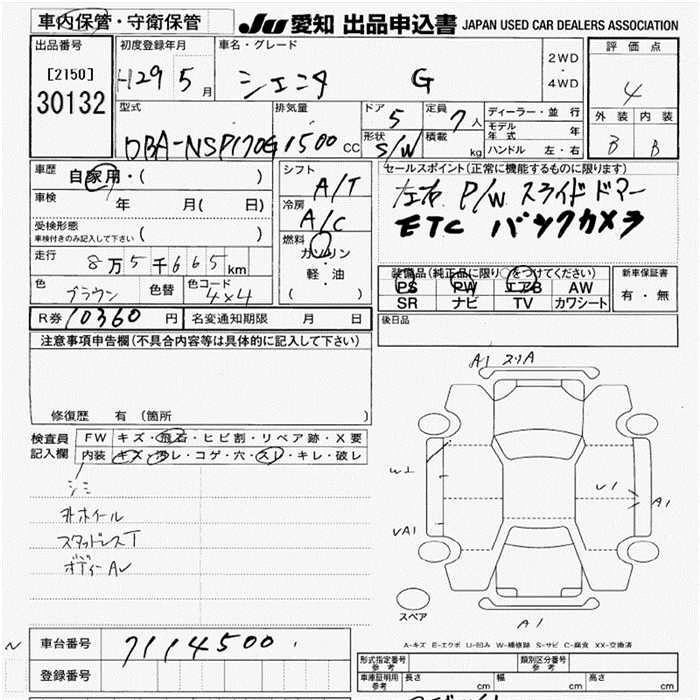 車内保管・守衛保管 JU 愛知 出品申込書 JAPAN USED CAR DEALERS ASSOCIATION
出品番号 初度登録年月 車名・グレード 評価点
[2150] H29 5月 シエンタ G 2WD・4WD 4
30132
型式 排気量 ドア 5 定員 7人 ディーラー・並 行 外装 内装
モデル年式 年
DBA-NSP170G 1500cc 形状 S/W 積載 kg ハンドル 左・右 B B
車歴 自家用・( ) シフト A/T セールスポイント(正常に機能するものに限ります)
車検 年 月( 日) 冷房 A/C 左右 P/W スライドドアー
受検形態 ( ) ETC バックカメラ
車検付きのみ記入して下さい
燃料 ガソリン・軽・油 ( )
走行 8万5千665km 装備品(純正品に限り○をつけてください) 新車保証書
色 ブラウン 色替 色コード 4×4 PS PW エアB AW 有・無
SR ナビ TV カワシート
R券 10360円 名変通知期限 月 日 後日品
注意事項申告欄(不具合内容等は具体的に記入して下さい)
修復歴 有(箇所 )
検査員記入欄 FW キズ・飛石・ヒビ割・リペア跡・X要
内装 キズ・汚レ・コゲ・穴・スレ・キレ・破レ
シミ
外ホイール
スタッドレスT
ボディーAU
A1 スリA
W1
U1
A1
VA1
スペア
A1
A-キズ E-エクボ U-凹み W-補修跡 S-サビ C-腐食 XX-交換済
車台番号 7114500
登録番号
形式指定番号 参考 類別区分番号 参考
車庫証明用 参考 長さ cm 幅 cm 高さ cm